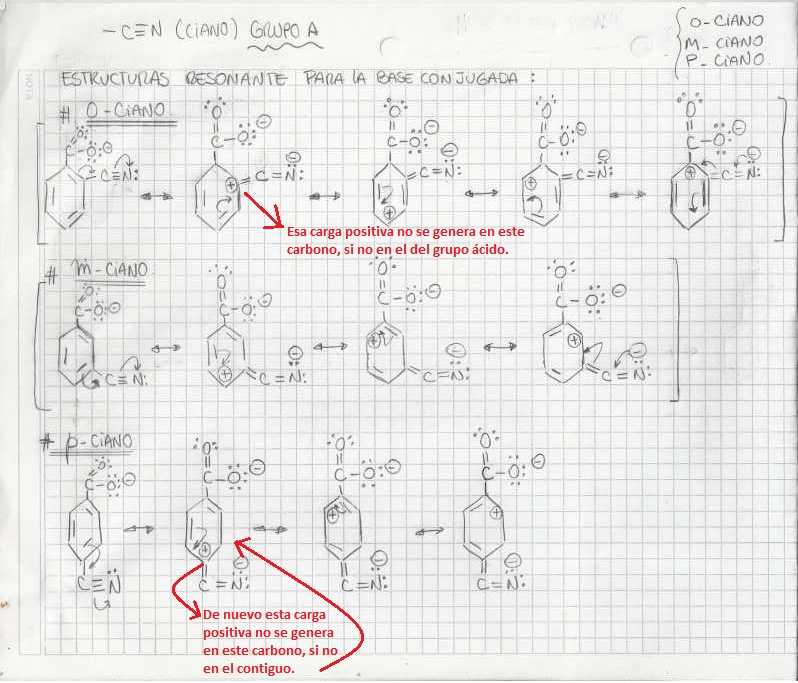 -C≡N (CIANO) GRUPO A
O-CIANO
M-CIANO
P-CIANO.
ESTRUCTURAS RESONANTE PARA LA BASE CONJUGADA:
# O-CIANO
Esa carga positiva no se genera en este
carbono, si no en el del grupo ácido.
# m-CIANO
# p-CIANO
De nuevo esta carga
positiva no se genera
en este carbono, si no
en el contiguo.